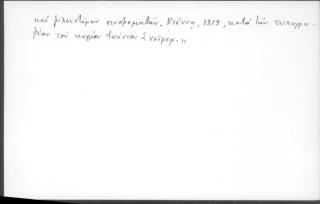 καὶ πλειοτέρων συνδρομητῶν. Βιέννῃ, 1819, κατὰ τὴν τυπογρα-
φίαν τοῦ κυρίου Ἰωάννου Σνεϊρερ.»